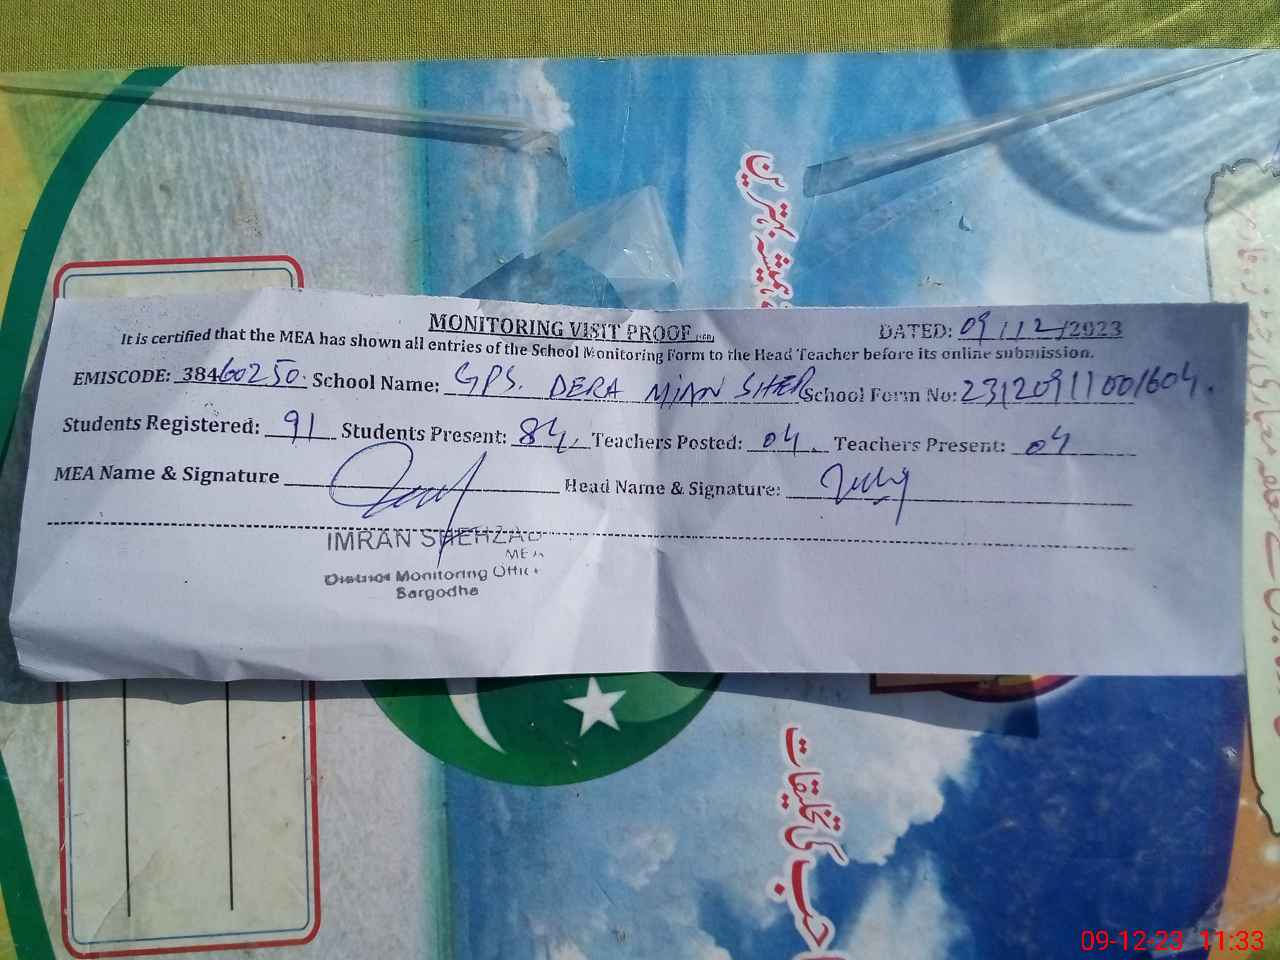 ہمیشہ بہترین
MONITORING VISIT PROOF
DATED: 09/12/2023
It is certified that the MEA has shown all entries of the School Monitoring Form to the Head Teacher before its online submission.
EMISCODE: 38460250. School Name: GPS. DERA MIAN SHER School Form No: 23120911001604.
Students Registered: 91 Students Present: 84, Teachers Posted: 04. Teachers Present: 04
MEA Name & Signature Head Name & Signature:
IMRAN SHEHZAD
MEA
District Monitoring Office
Sargodha
کی تخلیقات
09-12-23 11:33